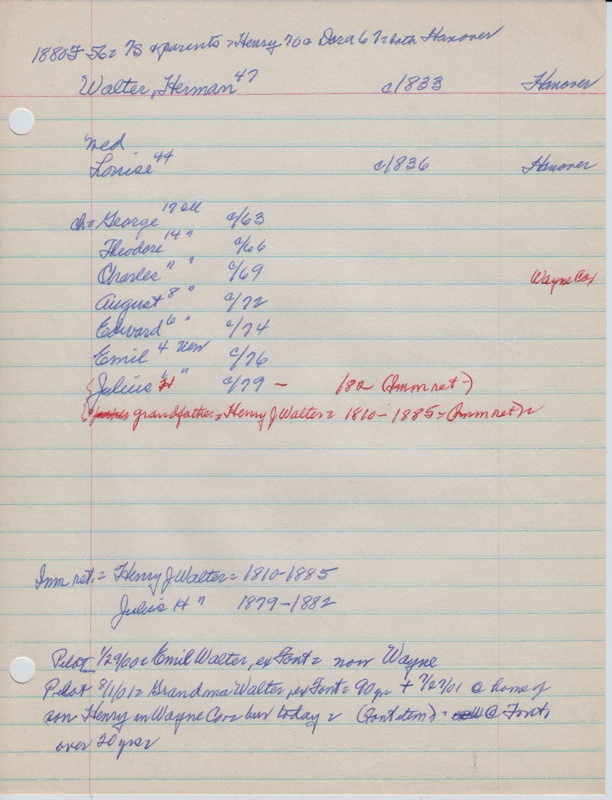 1880 F 56 = 73 + parents = Henry 70 a Dora 67 = both Hanover
Walter, Herman 47 c/1833 Hanover
wed
Louise 44 c/1836 Hanover
ch = George 17 Ill c/63
Theodore 14 " c/66
Charles " " c/69 Wayne Co,
August 8 " c/72
Edward 6 " c/74
Emil 4 Neb c/76
Julius " H " c/79 - 182 (Imm ret -)
grandfather = Henry J Walter = 1810 - 1885 = (Imm ret) =
Imm ret. = Henry J Walter = 1810-1885
Julius H " 1879-1882
Pilot 1/29/00 = Emil Walter, ex Font = now Wayne
Pilot 8/1/01 = Grandma Walter, ex Font = 90 yr + 7/27/01 @ home of
son Henry in Wayne Co = bur today = (Font item) = @ Font,
over 20 yrs =